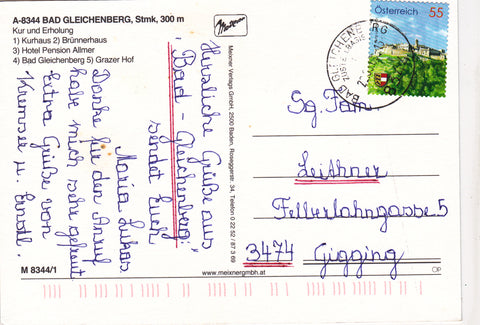 A-8344 BAD GLEICHENBERG, Stmk, 300 m
Kur und Erholung
1) Kurhaus 2) Brünnerhaus
3) Hotel Pension Allmer
4) Bad Gleichenberg 5) Grazer Hof
Herzliche Grüße aus
Bad-Gleichenberg:
sendet Euch
Maria Lukas
Danke für den Anruf
habe mich sehr gefreut
Extra Grüße von
M 8344/1
Meixner Verlags GmbH, 2500 Baden, Roseggerstr. 34, Telefon 0 22 52 / 87 3 69
www.meixnergmbh.at
Österreich 55
BAD GLEICHENBERG
Sg. Fam.
Leithner
Fellerlahngasse 5
3474 Gigging
OP